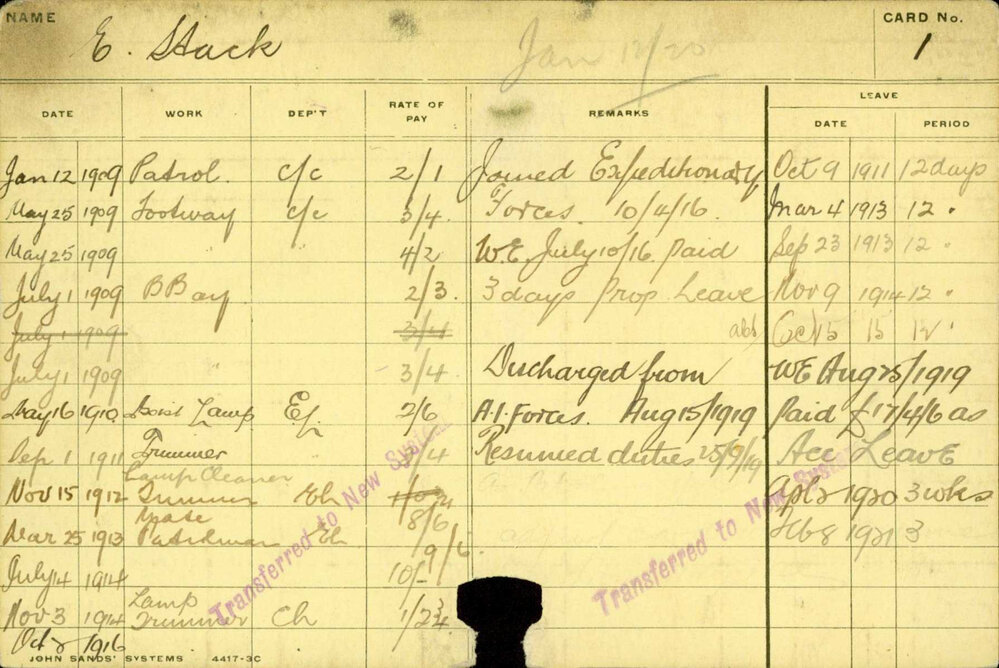 NAME
E. Stack
Jan 12/20
CARD No.
1
DATE WORK DEP'T RATE OF PAY REMARKS LEAVE
DATE PERIOD
Jan 12 1909 Patrol c/c 2/1 Joined Expeditionary Oct 9 1911 12 days
May 25 1909 Footway c/c 3/4. Forces. 10/4/16. Mar 4 1913 12 "
May 25 1909 4/2 W.E. July 10/16 paid Sep 23 1913 12 "
July 1 1909 B Bay 2/3. 3 days Prop Leave Nov 9 1914 12 "
July 1 1909 3/4 abs Oct 15 15 12 "
July 1 1909 " 3/4. Discharged from WE Aug 25/1919
May 16 1910 Lamp 2/6 A.I. Forces. Aug 15/1919 Paid £17/4/6 as
Sep 1 1911 Trimmer " /4 Resumed duties 25/9/19 Acc Leave
Lamp Cleaner
Nov 15 1912 Trimmer Eh 1920 3 wks
8/6
Mar 25 1913 Patrolman Eh 9/6. Feb 8 1921 3
July 4 1914 10/-
Lamp
Nov 3 1914 Trimmer Ch 1/2¾
Oct 2 1916
Transferred to New System
Transferred to New System
JOHN SANDS' SYSTEMS 4417-3C